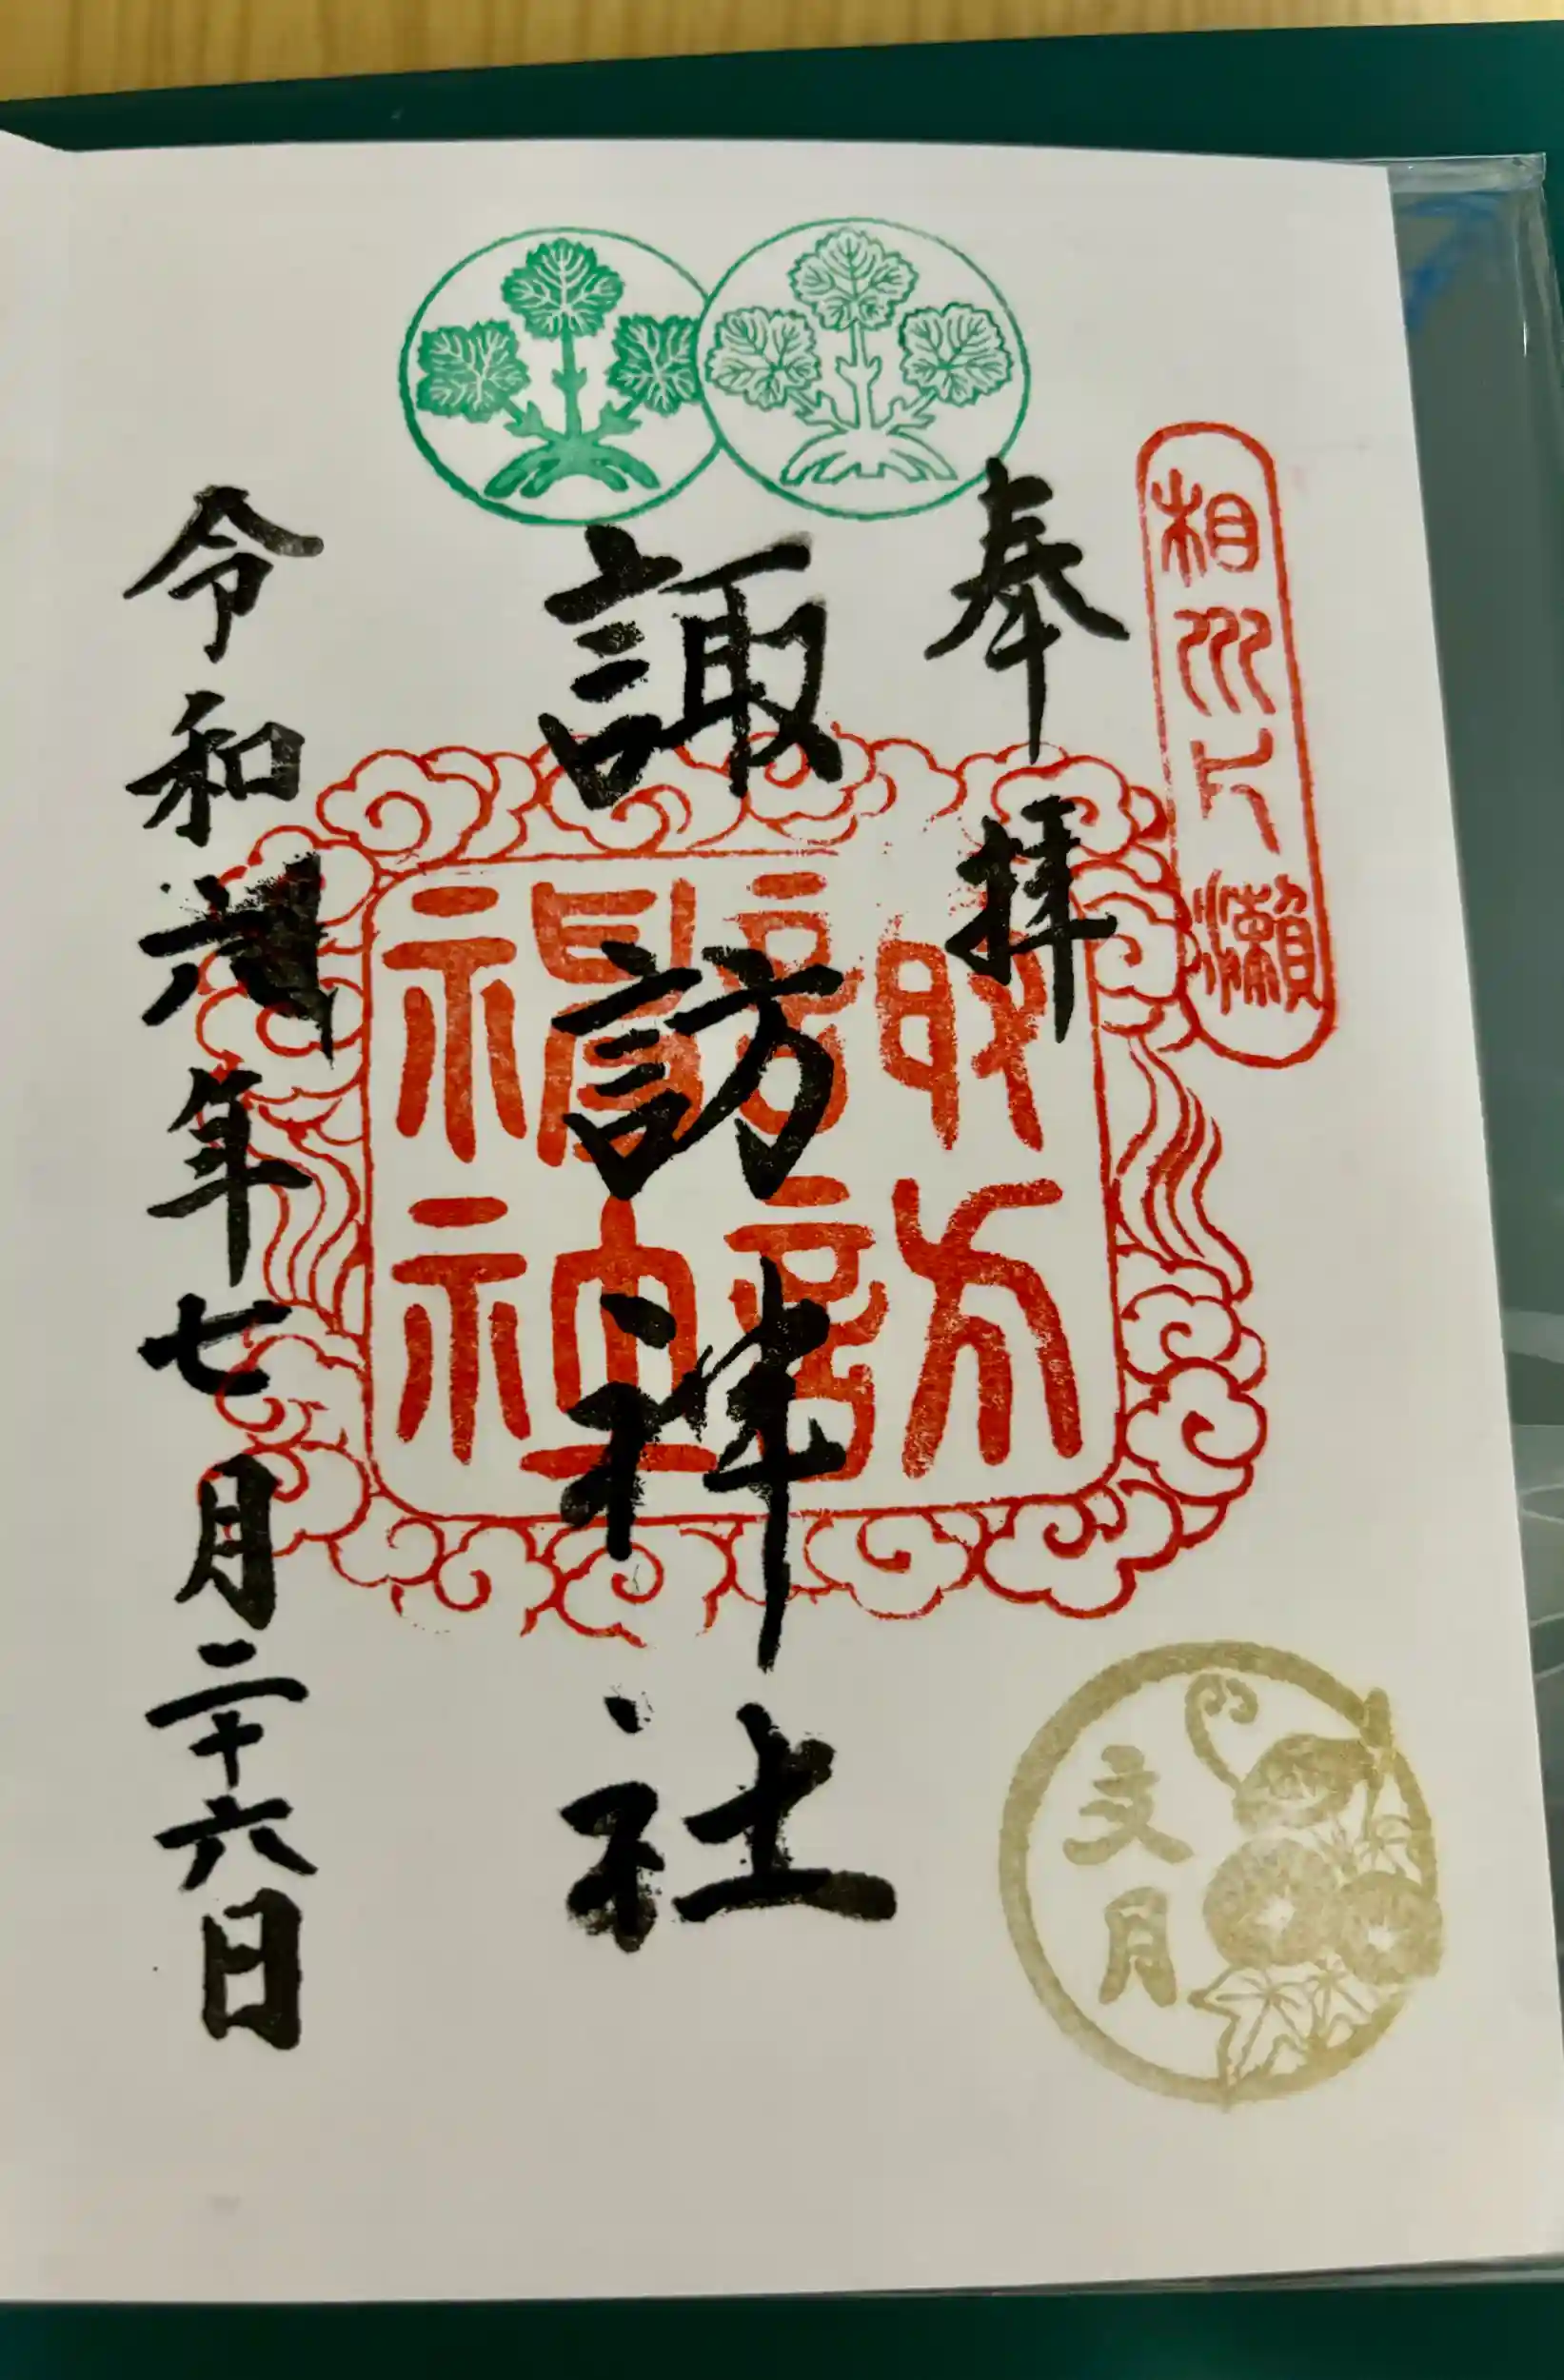 相州片瀬
奉拝
諏訪神社
諏訪
令和六年七月二十六日
文月